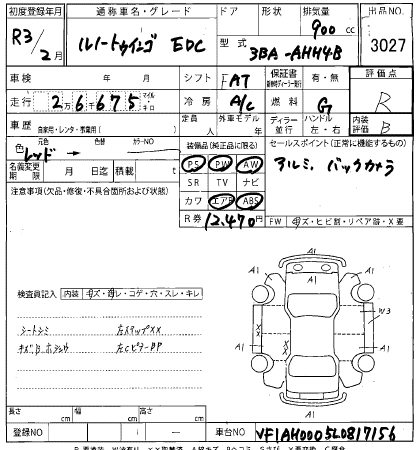 初度登録年月 通称車名・グレード ドア 形状 排気量 出品NO.
R3/2月 ルノートゥインゴ EDC 900cc 3027
型式 3BA-AHH4B
車検 年 月 シフト FAT 保証書 有・無 評価点
走行 26675 マイル キロ 冷房 A/C 燃料 G R
車歴 自家用・レンタ・事業用( ) 定員 人 外車モデル 年 ディーラー 並行 ハンドル 左・右 内装評価 B
色 元色 レッド → 色替 カラーNO 装備品(純正品に限る) セールスポイント(正常に機能するもの)
PS PW AW アルミ バックカメラ
名義変更期限 月 日迄 積載 t SR TV ナビ
注意事項(欠品・修復・不具合箇所および状態) カワ エアB ABS
R券 12,470円 FW キズ・ヒビ割・リペア跡・X要
検査員記入 内装 キズ・キレ・コゲ・穴・スレ・キレ
シートシミ 左ステップXX
キズB 左CピラーBP
A1
A1 A1
XX W3
A1 A1
A1
長さ cm 幅 cm 高さ cm
登録NO 車台NO VF1AH0005L0817156